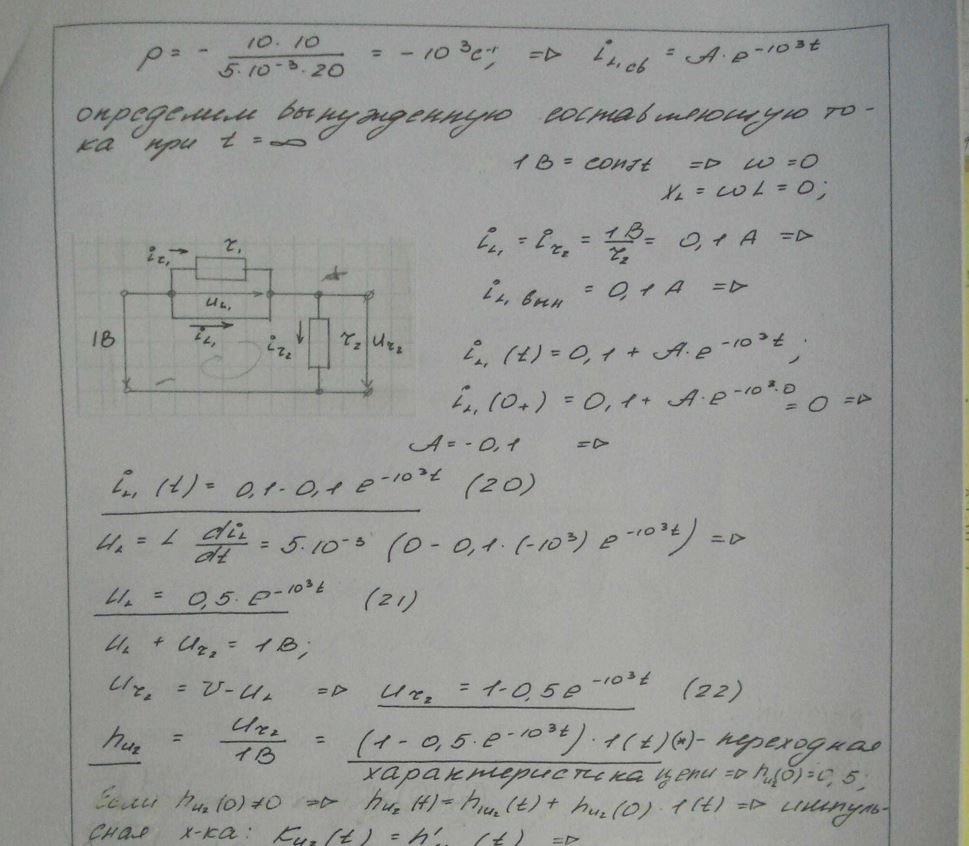 p = - 10·10 / 5·10⁻³·20 = - 10³c⁻¹, => i_L,св = A·e^(-10³t)
определим вынужденную составляющую то-
ка при t = ∞
1В = const => ω = 0
X_L = ωL = 0;
i_L, = i_r₂ = 1В/r₂ = 0,1 А =>
i_L,вын = 0,1 А =>
i_r₁ r₁
u_L,
1В i_L, i_r₂ r₂ u_r₂
i_L, (t) = 0,1 + A·e^(-10³t);
i_L, (0₊) = 0,1 + A·e^(-10³·0) = 0 =>
A = -0,1 =>
i_L, (t) = 0,1 - 0,1 e^(-10³t) (20)
u_L = L di_L/dt = 5·10⁻³ (0 - 0,1·(-10³) e^(-10³t)) =>
u_L = 0,5·e^(-10³t) (21)
u_L + u_r₂ = 1В;
u_r₂ = U - u_L => u_r₂ = 1 - 0,5e^(-10³t) (22)
h_u₂ = u_r₂/1В = (1 - 0,5·e^(-10³t))·1(t) (*) - переходная
характеристика цепи => h_u₂(0) = 0,5;
Если h_u₂(0) ≠ 0 => h_u₂(t) = h_1u₂(t) + h_u₂(0)·1(t) => импуль-
сная х-ка: K_u₂(t) = h' (t) =>